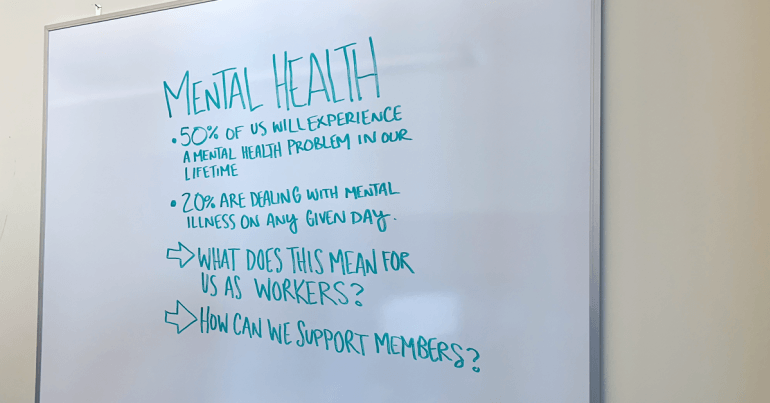 MENTAL HEALTH
• 50% OF US WILL EXPERIENCE
A MENTAL HEALTH PROBLEM IN OUR
LIFETIME
• 20% ARE DEALING WITH MENTAL
ILLNESS ON ANY GIVEN DAY.
⇨ WHAT DOES THIS MEAN FOR
US AS WORKERS?
⇨ HOW CAN WE SUPPORT MEMBERS?